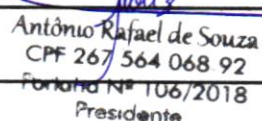 Antônio Rafael de Souza
CPF 267 564 068 92
Portaria Nº 106/2018
Presidente